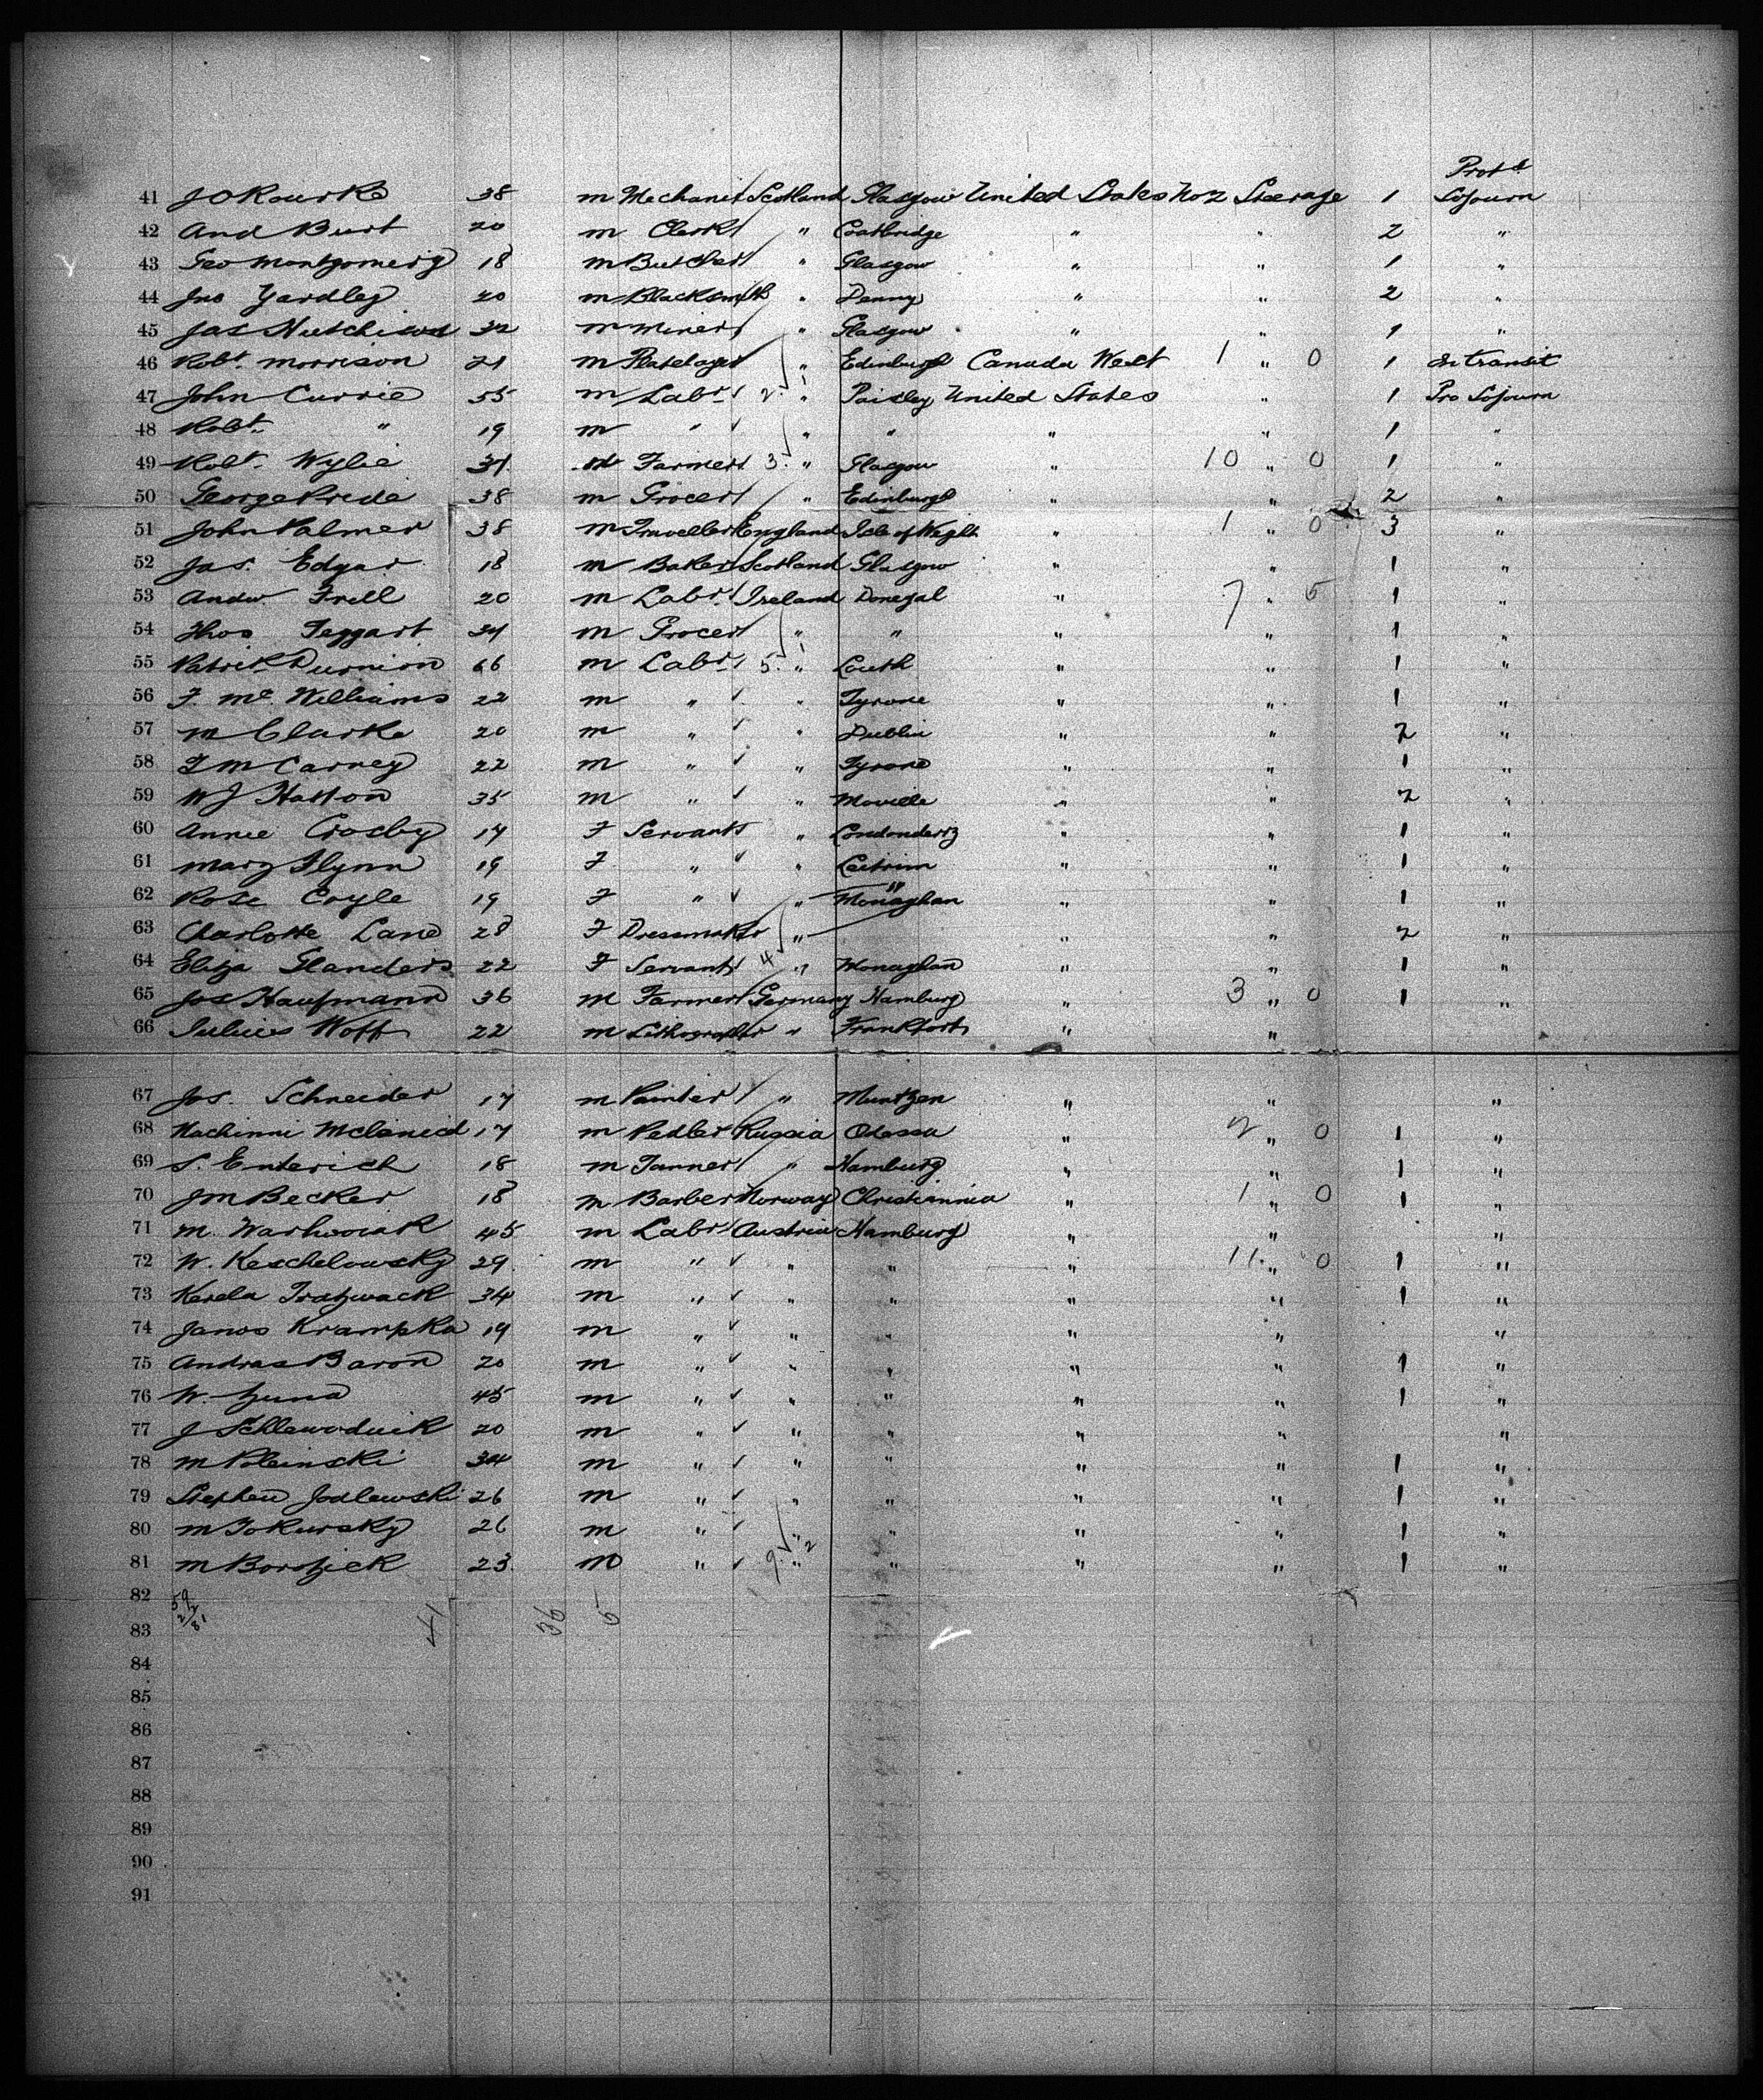 Prot d
41 J O Rourke 38 m Mechanic Scotland Glasgow United States No 2 Steerage 1 Sojourn
42 And Burt 20 m Clerk " Coatbridge " " 2 "
43 Geo Montgomery 18 m Butcher " Glasgow " " 1 "
44 Jno Yardley 20 m Blacksmith " Denny " " 2 "
45 Jas Hutchison 32 m Miner " Glasgow " " 1 "
46 Robt. Morrison 21 m Platelayer " Edinburgh Canada West 1 " 0 1 In transit
47 John Currie 55 m Labr 2 " Paisley United States " 1 Pro Sojourn
48 Robt. " 19 m " " " " " 1 "
49 Robt. Wylie 31 m Farmer 3 " Glasgow " 10 " 0 1 "
50 George Pride 38 m Grocer " Edinburgh " " 2 "
51 John Palmer 38 m Traveller England Isle of Wight " 1 " 0 3 "
52 Jas. Edgar 18 m Baker Scotland Glasgow " " 1 "
53 Andw. Frell 20 m Labr. Ireland Donegal " 7 " 5 1 "
54 Thos Teggart 34 m Grocer " " " " 1 "
55 Patrick Durnion 66 m Labr 5 " Louth " " 1 "
56 F. Mc. Williams 22 m " " Tyrone " " 1 "
57 M Clarke 20 m " " Dublin " " 2 "
58 T M Carney 22 m " " Tyrone " " 1 "
59 W J Hatton 35 m " " Moville " " 2 "
60 Annie Crosby 17 F Servant " Londonderry " " 1 "
61 Mary Flynn 19 F " " Leitrim " " 1 "
62 Rose Coyle 19 F " " " Monaghan " " 1 "
63 Charlotte Lane 28 F Dressmaker " " " 2 "
64 Eliza Glanders 22 F Servant 4 " Monaghan " " 1 "
65 Jos Haufmann 36 m Farmer Germany Hamburg " 3 " 0 1 "
66 Julius Woff 22 m Lithographer " Frankfort " "
67 Jos. Schneider 17 m Painter " Muntzen " " "
68 Machinni 17 m Pedler Russia Odessa " 2 " 0 1 "
69 S. Enterich 18 m Tanner " Hamburg " " 1 "
70 J M Becker 18 m Barber Norway Christinnia " 1 " 0 1 "
71 M. Warhoviak 45 m Labr Austria Hamburg " " "
72 W. Keschelowsky 29 m " " " " 11 " 0 1 "
73 Kerela Tratzwack 34 m " " " " " 1 "
74 Janos Krampka 19 m " " " " " "
75 Andras Baron 20 m " " " " " 1 "
76 W. Zuna 45 m " " " " " 1 "
77 J Schlewoduick 20 m " " " " " "
78 M Poleinski 34 m " " " " " 1 "
79 Stephen Jodlewski 26 m " " " " " 1 "
80 M Tokursky 26 m " " " " " 1 "
81 M Borszick 23 m " 9 " 2 " " " 1 "
82 59
83 41 36 5
84
85
86
87
88
89
90
91